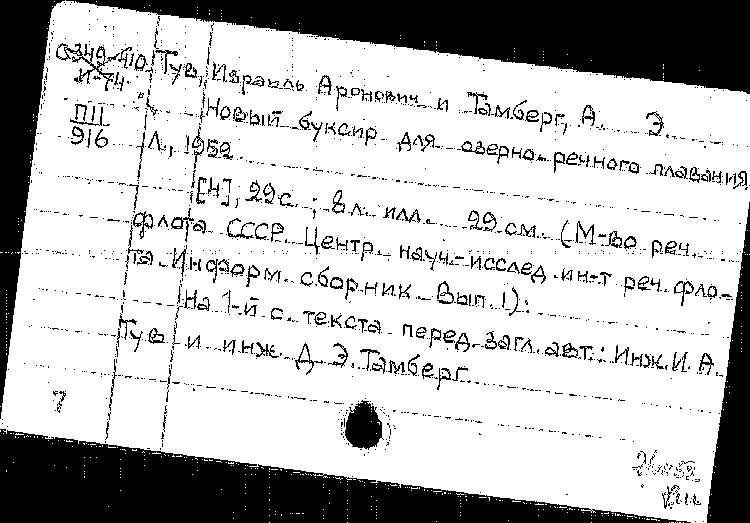 С-349-410
И-74
Тув, Израиль Аронович и Тамберг, А. Э.
Новый буксир для озерно-речного плавания.
ПII
916
Л., 1952
[4], 22с.; 8 л. илл. 29 см. (М-во реч.
флота СССР. Центр. науч.-исслед. ин-т реч. фло-
та. Информ. сборник. Вып. 1):
На 1-й с. текста перед загл. авт.: Инж. И. А.
Тув и инж. Д. Э. Тамберг.
7